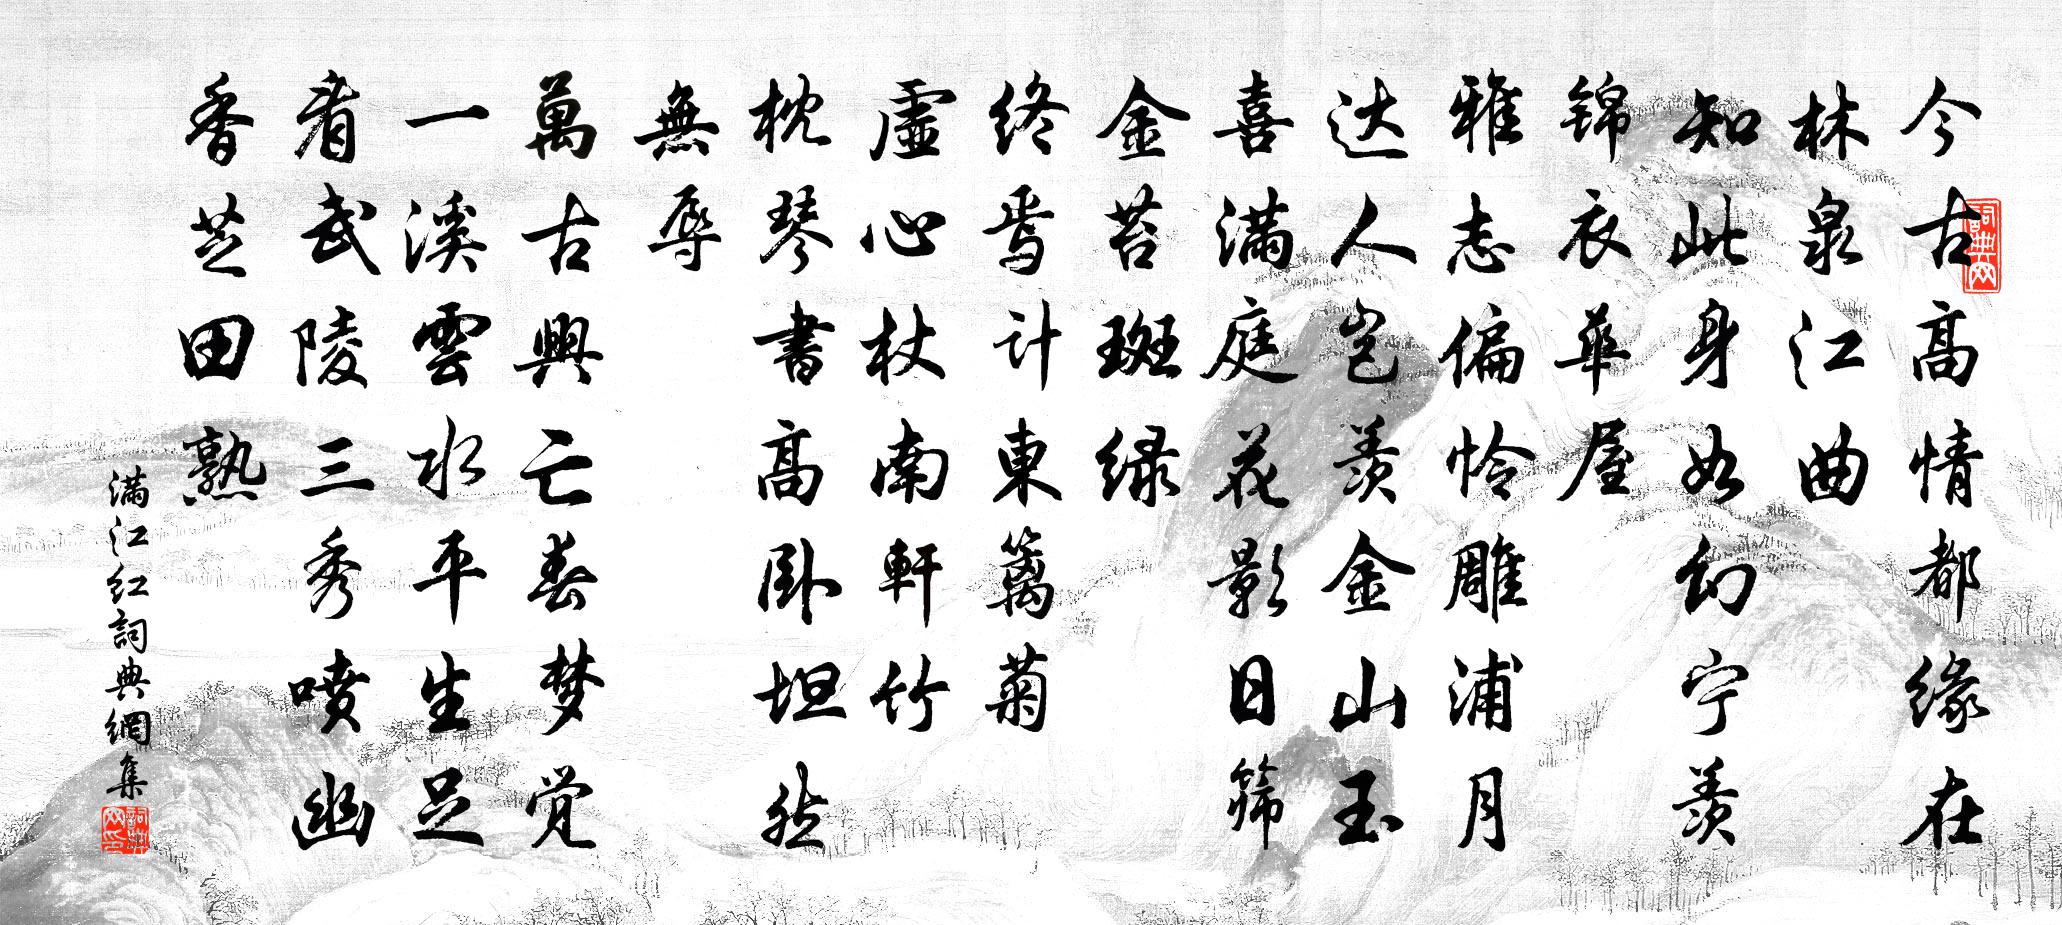 今古高情都缘在
林泉江曲
知此身如幻宁羡
锦衣华屋
雅志偏怜雕浦月
达人岂羡金山玉
喜满庭花影日筛
金苔斑绿
终焉计東篱菊
虛心杖南軒竹
枕琴書高卧坦然
無辱
萬古興亡春梦觉
一溪雲水平生足
看武陵三秀喷幽
香芝田熟
满江红詞典網集
詞典网
詞典网印